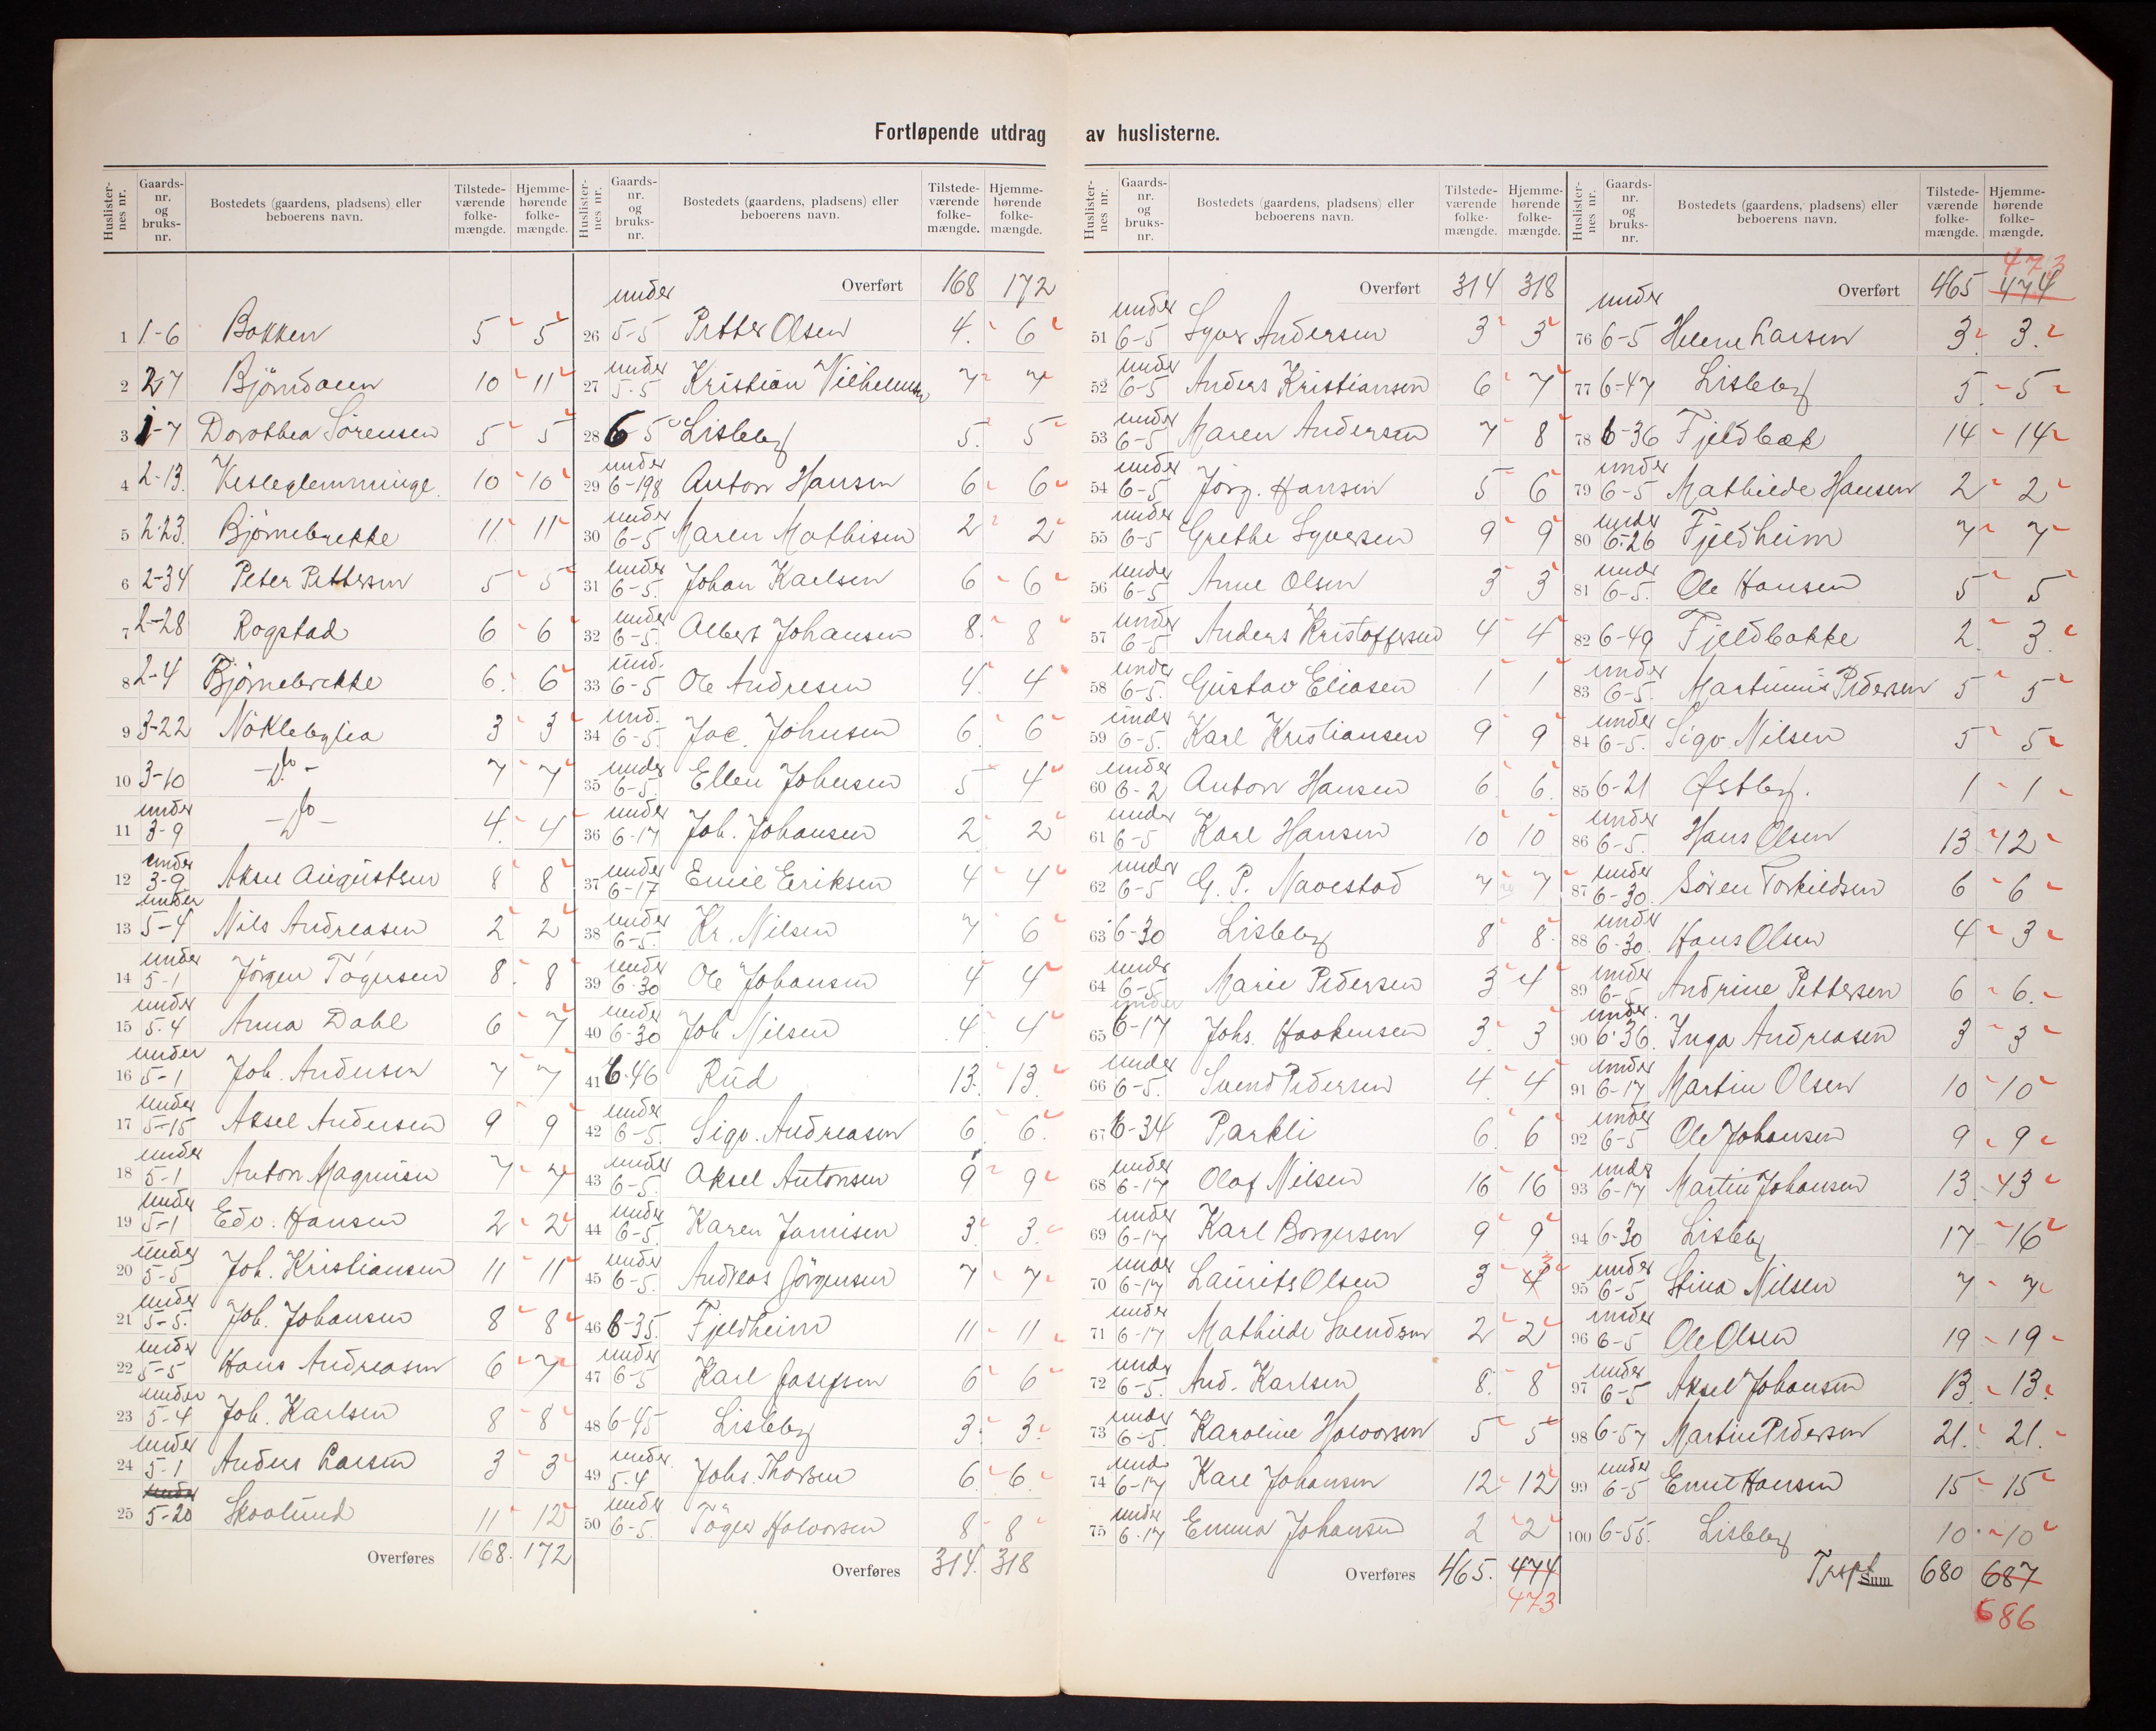 Fortløpende utdrag av huslisterne.
Huslister-nes nr. Gaards-nr. og bruks-nr. Bostedets (gaardens, pladsens) eller beboerens navn. Tilstede-værende folke-mængde. Hjemme-hørende folke-mængde.
1 1-6 Bakken 5 5
2 2-7 Björndalen 10 11
3 1-7 Dorothea Sörensen 5 5
4 2-13. Vesleglemminge. 10 10
5 2-23. Bjørnebrekke 11 11
6 2-34 Peter Pettersen 5 5
7 2-28 Rogstad 6 6
8 2-4 Bjørnebrekke 6. 6
9 3-22 Nöklebylia 3 3
10 3-10 -Do- 7 7
11 under 3-9 -Do- 4. 4
12 under 3-9 Aksel Augustsen 8 8
13 under 5-4 Nils Andreasen 2 2
14 under 5-1 Jörgen Tögersen 8. 8
15 under 5-4 Anna Dahl 6 7
16 under 5-1 Joh. Andersen 7 7
17 under 5-15 Aksel Andersen 9 9
18 under 5-1 Anton Magnusen 7 7
19 under 5-1 Edv. Hansen 2 2
20 under 5-5 Joh. Kristiansen 11 11
21 under 5-5. Joh. Johansen 8 8
22 under 5-5 Hans Andreasen 6 7
23 under 5-4 Joh. Karlsen 8 8
24 under 5-1 Anders Larsen 3 3
25 under 5-20 Skovlund 11 12
Overføres 168. 172
Huslister-nes nr. Gaards-nr. og bruks-nr. Bostedets (gaardens, pladsens) eller beboerens navn. Tilstede-værende folke-mængde. Hjemme-hørende folke-mængde.
Overført 168 172
26 under 5-5 Petter Olsen 4. 6
27 under 5-5 Kristian Vilhelmsen 7 7
28 6-5 Lisleby 5. 5
29 under 6-198 Anton Hansen 6 6
30 under 6-5 Maren Mathisen 2 2
31 under 6-5. Johan Karlsen 6 6
32 under 6-5. Albert Johansen 8. 8
33 und. 6-5 Ole Andresen 4. 4
34 und. 6-5. Jac. Johnsen 6. 6
35 under 6-5. Ellen Johnsen 5 4
36 under 6-17 Joh. Johansen 2 2
37 under 6-17 Emil Eriksen 4 4
38 under 6-5. Kr. Nilsen 7 6
39 under 6-30 Ole Johansen 4 4
40 under 6-30 Joh Nilsen 4. 4
41 6-46 Rud 13. 13.
42 under 6-5. Sigv. Andreasen 6. 6.
43 under 6-5. Aksel Antonsen 9 9
44 under 6-5. Karen Jamisen 3. 3.
45 under 6-5. Andreas Jörgensen 7 7
46 6-35. Fjeldheim 11 11
47 under 6-5 Karl Josefsen 6 6
48 6-45 Lisleby 3. 3.
49 under 5-4 Johs. Thorsen 6. 6.
50 under 6-5. Töger Halvorsen 8 8
Overføres 314. 318
Huslister-nes nr. Gaards-nr. og bruks-nr. Bostedets (gaardens, pladsens) eller beboerens navn. Tilstede-værende folke-mængde. Hjemme-hørende folke-mængde.
Overført 314 318
51 under 6-5 Syver Andersen 3 3
52 under 6-5 Anders Kristiansen 6 7
53 under 6-5 Maren Andersen 7 8
54 under 6-5 Jörg. Hansen 5 6
55 under 6-5 Grethe Syversen 9 9
56 under 6-5 Anne Olsen 3 3
57 under 6-5 Anders Kristoffersen 4 4
58 under 6-5. Gustav Eliasen 1 1
59 under 6-5. Karl Kristiansen 9 9
60 under 6-2 Anton Hansen 6. 6.
61 under 6-5 Karl Hansen 10 10
62 under 6-5 G. P. Navestad 7 7
63 6-30 Lisleby 8 8
64 under 6-5 Marie Pedersen 3 4
65 under 6-17 Johs. Haakensen 3. 3
66 under 6-5. Svend Pedersen 4. 4
67 6-34 Parkli 6. 6
68 under 6-17 Olaf Nilsen 16 16
69 under 6-17 Karl Borgersen 9 9
70 under 6-17 Laurits Olsen 3 4 3
71 under 6-17 Mathilde Svendsen 2 2
72 under 6-5. And. Karlsen 8. 8
73 under 6-5. Karoline Halvorsen 5 5
74 under 6-17 Karl Johansen 12 12
75 under 6-17 Emma Johansen 2 2
Overføres 465. 474
473
Huslister-nes nr. Gaards-nr. og bruks-nr. Bostedets (gaardens, pladsens) eller beboerens navn. Tilstede-værende folke-mængde. Hjemme-hørende folke-mængde.
473
Overført 465 474
76 under 6-5 Helene Larsen 3. 3.
77 6-47 Lisleby 5. 5
78 6-36 Fjeldbæk 14 14
79 under 6-5 Mathilde Hansen 2 2
80 under 6-26 Fjeldheim 7 7
81 under 6-5. Ole Hansen 5 5
82 6-49 Fjeldbakke 2. 3.
83 under 6-5. Martinius Pedersen 5 5
84 under 6-5. Sigv. Nilsen 5 5
85 6-21 Østby. 1 1
86 under 6-5. Hans Olsen 13 12
87 under 6-30. Sören Torkildsen 6 6
88 under 6-30. Hans Olsen 4 3
89 under 6-5 Andrine Pettersen 6 6.
90 under 6-36. Inga Andreasen 3 3
91 under 6-17 Martin Olsen 10 10
92 under 6-5 Ole Johansen 9 9
93 under 6-17 Martin Johansen 13 13
94 6-30 Lisleby 17 16
95 under 6-5 Stina Nilsen 7 7
96 under 6-5 Ole Olsen 19 19
97 under 6-5 Aksel Johansen 13. 13.
98 6-57 Martin Pedersen 21. 21.
99 under 6-5 Emil Hansen 15 15
100 6-55. Lisleby 10 10
Trspt Sum 680 687
686